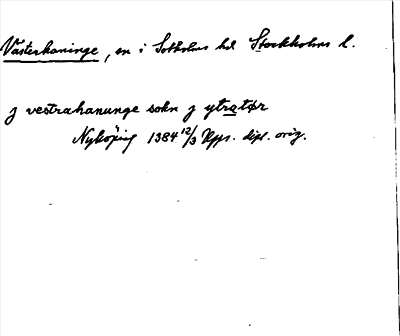 Västerhaninge, sn i Sotholms hd Stockholms l.
j vestrahanunge sokn j ytratør
Nyköping 1384 12/3 Rpps. dipl. orig.